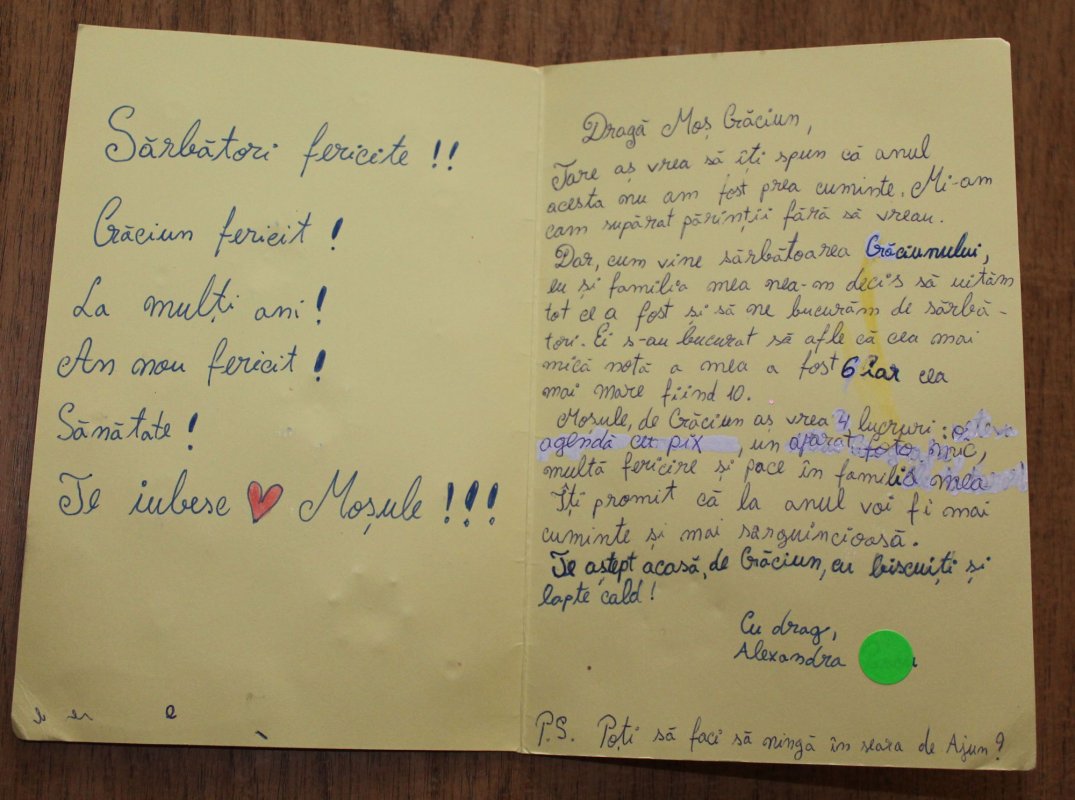 Sărbători fericite !!
Crăciun fericit !
La mulți ani !
An nou fericit !
Sănătate !
Te iubesc Moșule !!!
Dragă Moș Crăciun,
Tare aș vrea să îți spun că anul
acesta nu am fost prea cuminte. Mi-am
cam supărat părinții fără să vreau.
Dar, cum vine sărbătoarea Crăciunului,
eu și familia mea nea-m decis să uităm
tot ce a fost și să ne bucurăm de sărbă-
tori. Ei s-au bucurat să afle că cea mai
mică notă a mea a fost 6 iar cea
mai mare fiind 10.
Moșule, de Crăciun aș vrea 4 lucruri: o
agendă cu pix, un aparat foto mic,
multă fericire și pace în familia mea
Îți promit că la anul voi fi mai
cuminte și mai sârguincioasă.
Te aștept acasă, de Crăciun, cu biscuiți și
lapte cald!
Cu drag,
Alexandra
P.S. Poți să faci să ningă în seara de Ajun?